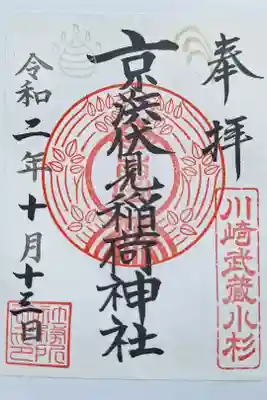 奉拝
川崎武蔵小杉
京濱伏見稲荷神社
令和二年十月十三日